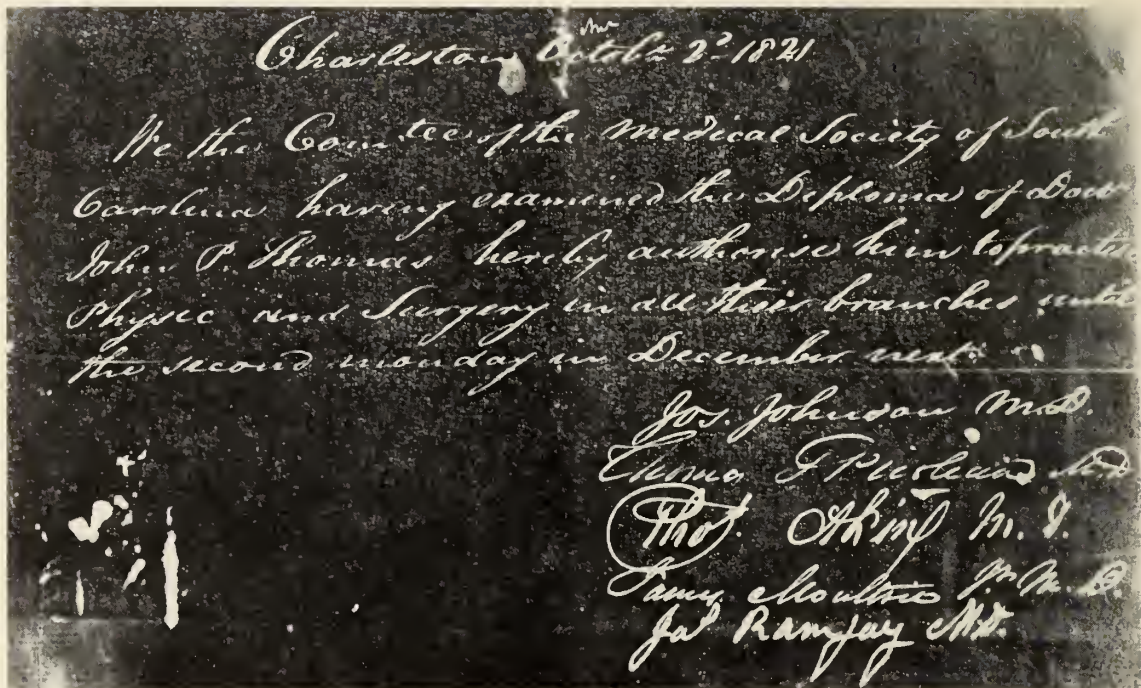 Charleston Octobr 2d 1821
We the Comtee of the Medical Society of South
Carolina having examined the Diploma of Doct
John P. Thomas hereby authorise him to practi
Physic and Surgery in all their branches until
the second monday in December next.
Jos. Johnson M.D.
Thomas MD
Thos. Akin M. D.
James Moultrie Jr. M.D.
Jas Ramsay MD.